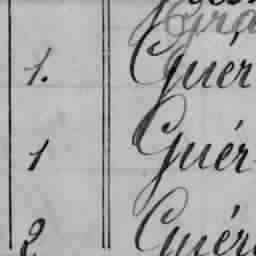 1. Guer
1 Guér
2 Guér